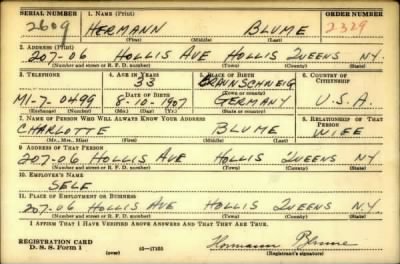 SERIAL NUMBER 1. NAME (Print) ORDER NUMBER
2609 HERMANN BLUME 2329
(First) (Middle) (Last)
2. ADDRESS (Print)
207-06 HOLLIS AVE HOLLIS QUEENS N.Y.
(Number and street or R. F. D. number) (Town) (County) (State)
3. TELEPHONE 4. AGE IN YEARS 5. PLACE OF BIRTH 6. COUNTRY OF CITIZENSHIP
33 BRAUNSCHWEIG
DATE OF BIRTH (Town or county)
MI-7-0499 8-10-1907 GERMANY U.S.A.
(Exchange) (Number) (Mo.) (Day) (Yr.) (State or country)
7. NAME OF PERSON WHO WILL ALWAYS KNOW YOUR ADDRESS 8. RELATIONSHIP OF THAT PERSON
CHARLOTTE BLUME WIFE
(Mr., Mrs., Miss) (First) (Middle) (Last)
9. ADDRESS OF THAT PERSON
207-06 HOLLIS AVE HOLLIS QUEENS NY
(Number and street or R. F. D. number) (Town) (County) (State)
10. EMPLOYER'S NAME
SELF
11. PLACE OF EMPLOYMENT OR BUSINESS
207-06 HOLLIS AVE HOLLIS QUEENS N.Y.
(Number and street or R. F. D. number) (Town) (County) (State)
I AFFIRM THAT I HAVE VERIFIED ABOVE ANSWERS AND THAT THEY ARE TRUE.
REGISTRATION CARD
D. S. S. Form 1 (over) Hermann Blume
(Registrant's signature)